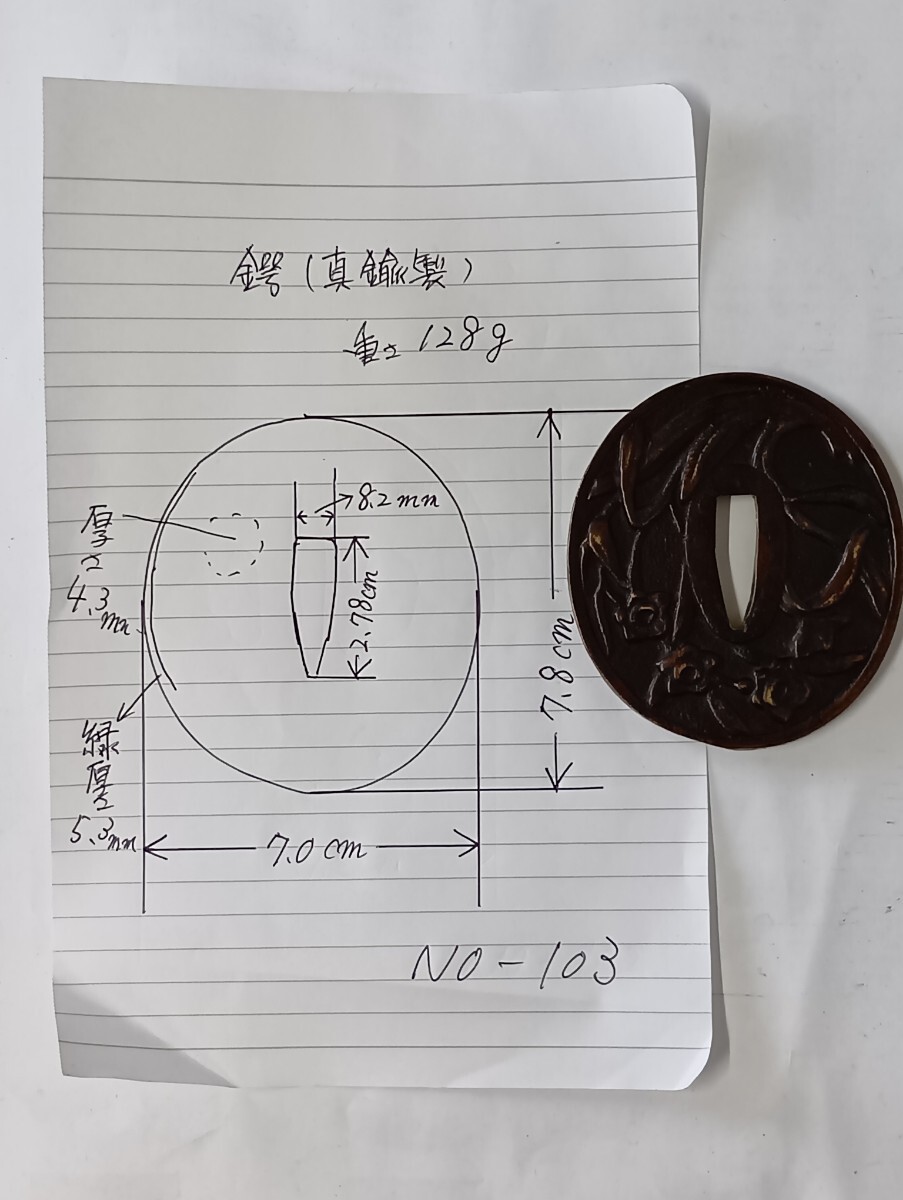 鍔(真鍮製)
重さ 128g
8.2mm
2.78cm
厚さ
4.3mm
7.8cm
縁厚さ
5.3mm
7.0cm
NO-103